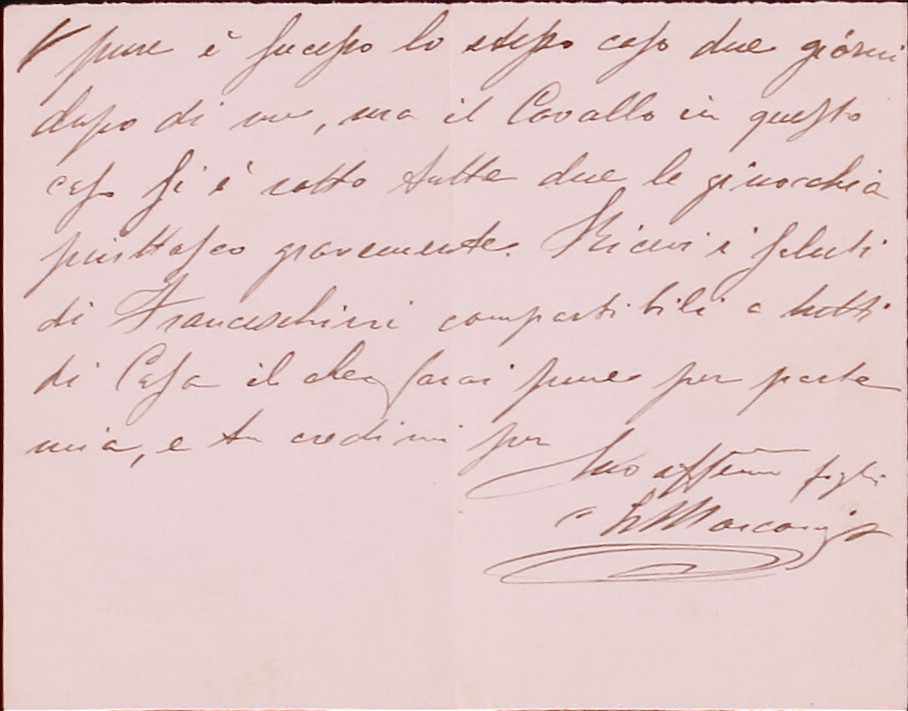 pure è sucesso lo stesso caso due giorni
dopo di me, ma il Cavallo in questo
caso si è rotto tutte due le ginocchia
piuttosto gravemente. Ricevi i saluti
di Franceschini compartibili a tutti
di Casa il che farai pure per parte
mia, e tu credimi per
tuo affemo figlio
L Marconi